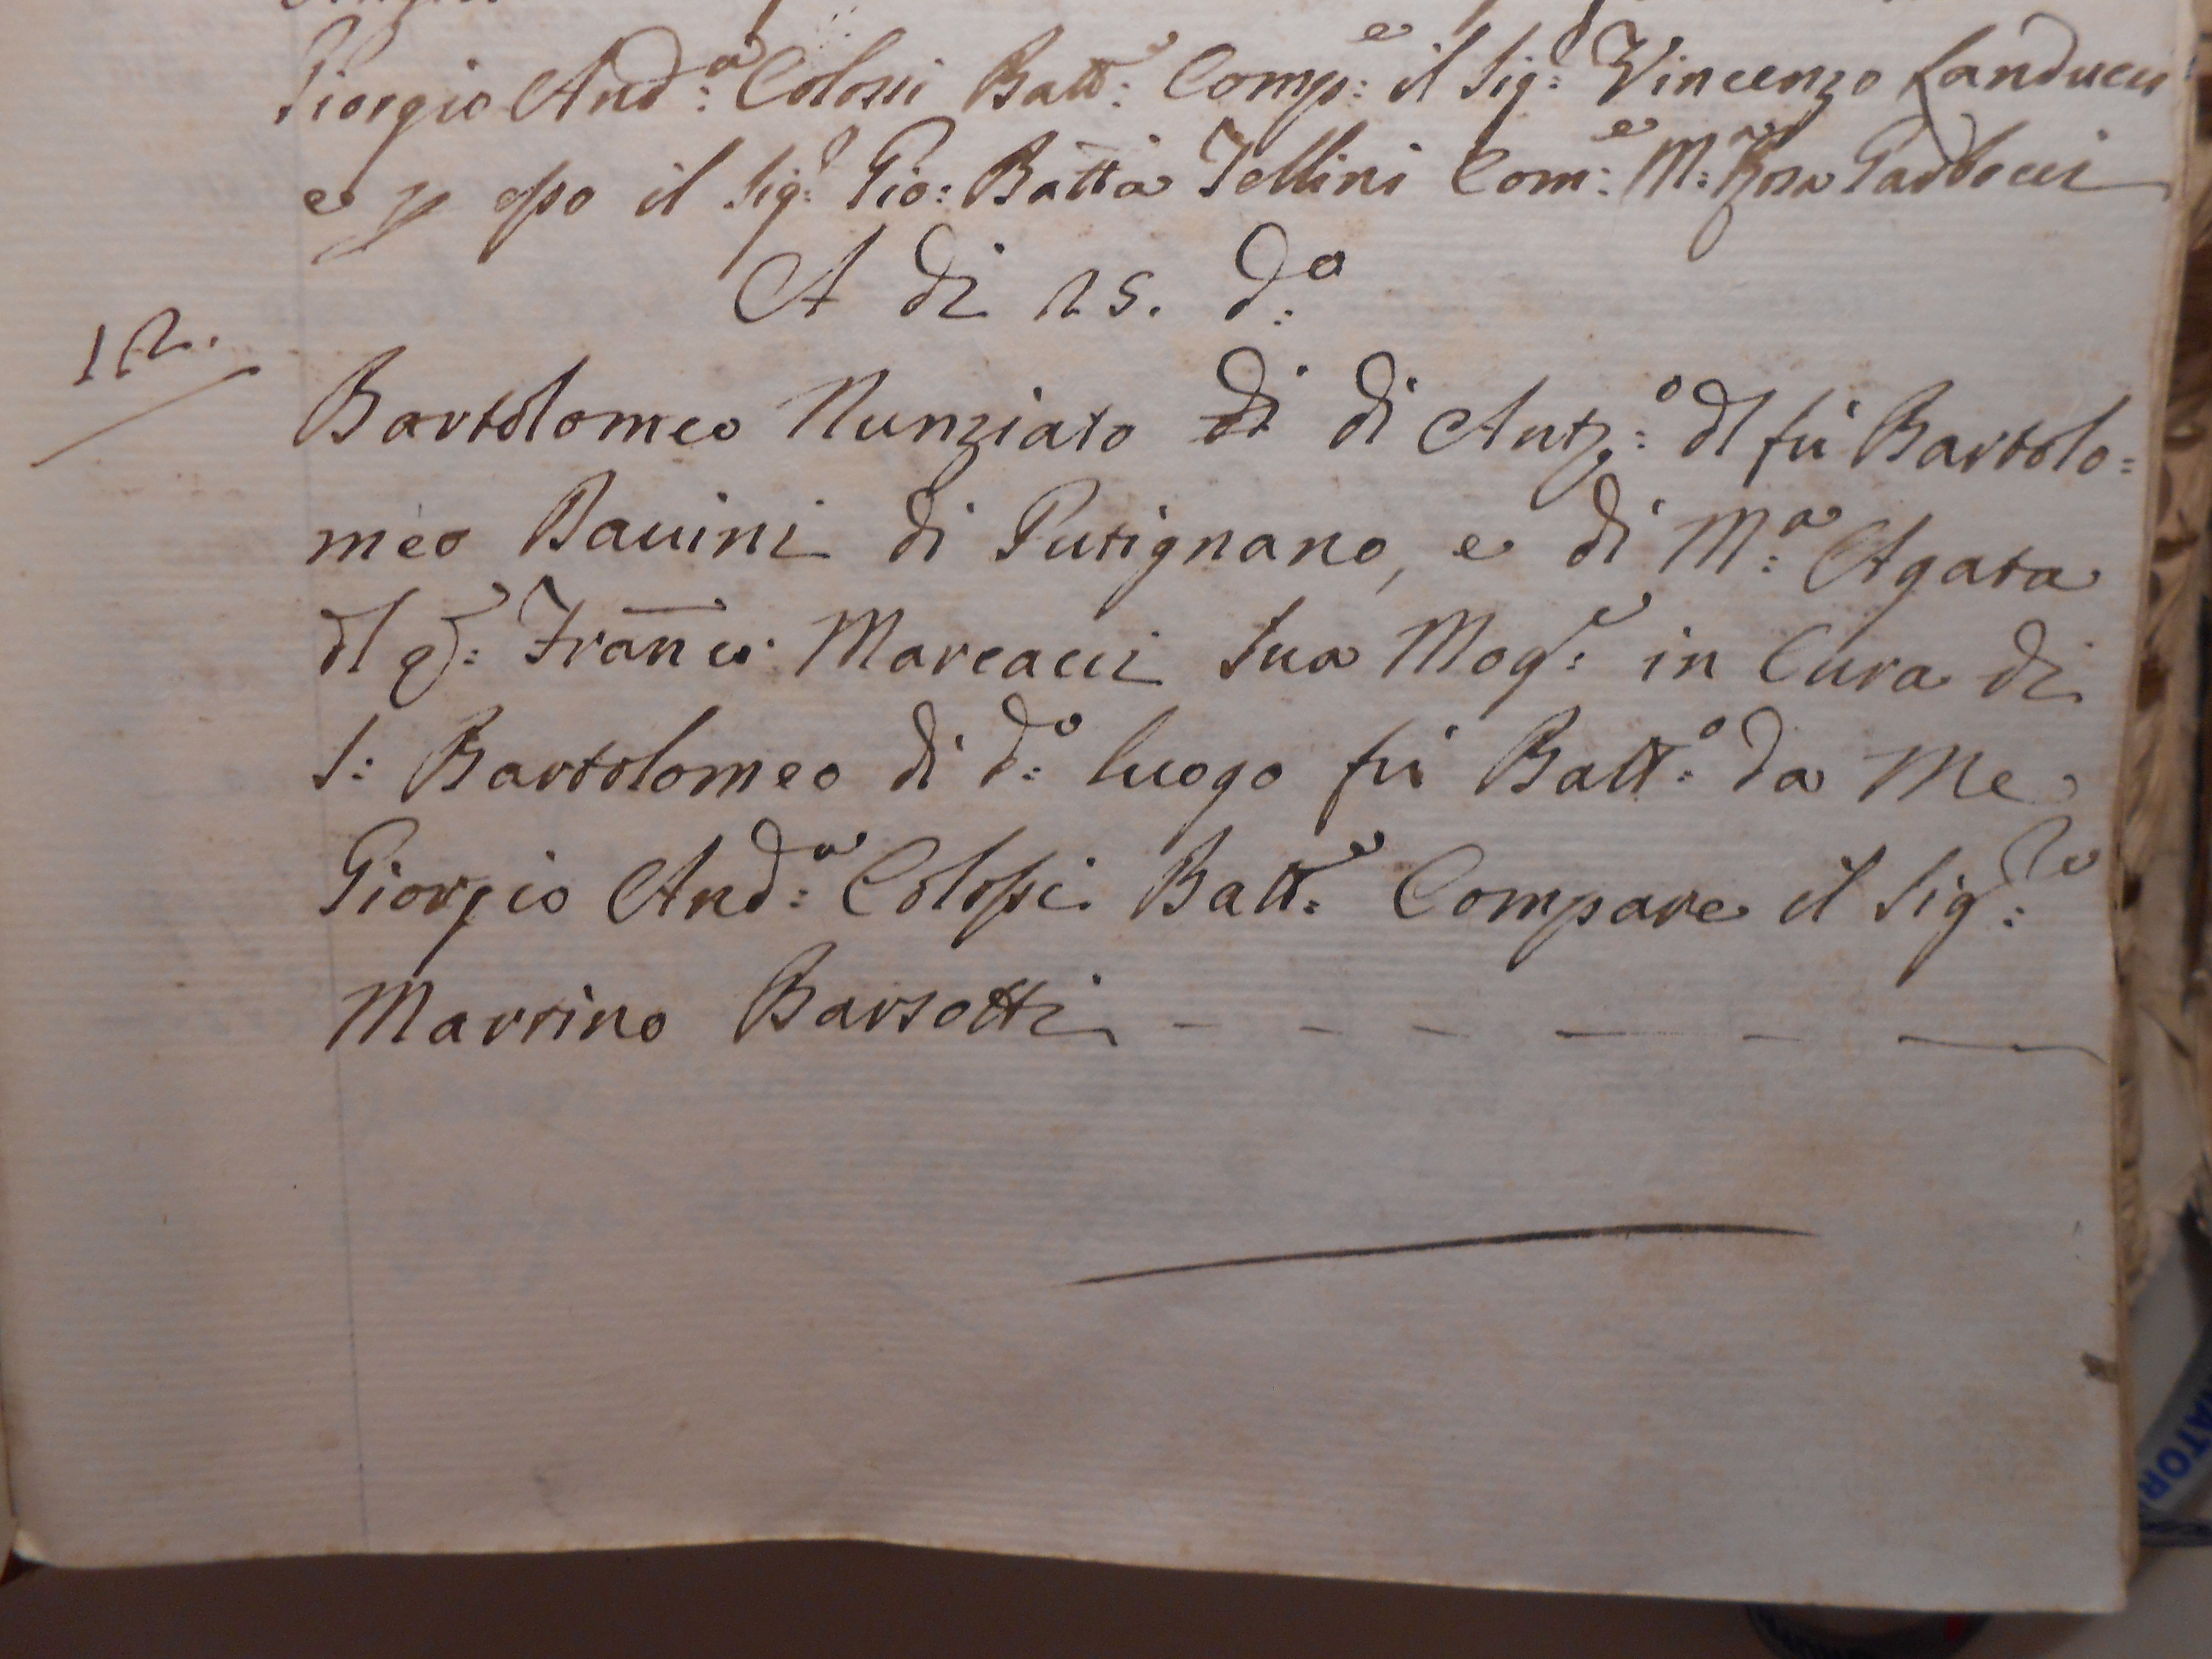 Giorgio And:ª Colossi Batt:e Comp:e il Sig:r Vincenzo Landucci
e p esso il Sig:r Gio: Batta Tellini Com:e M:a Rosa
A di 25. d:o
12.
Bartolomeo Nunziato di di Ant:o dl fù Bartolo=
meo Bauini di Putignano, e di M:a Agata
dl q:m Franco Marcacci Sua Mog:e in Cura di
S: Bartolomeo di d:o luogo fù Batt:o da Me
Giorgio And:a Colossi Batt:e Compare il Sig:re
Martino Barsotti - - - - - -
ATOR